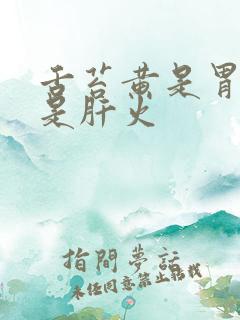 舌苔黄是胃
是肝火
指間夢話
未经同意禁止转载